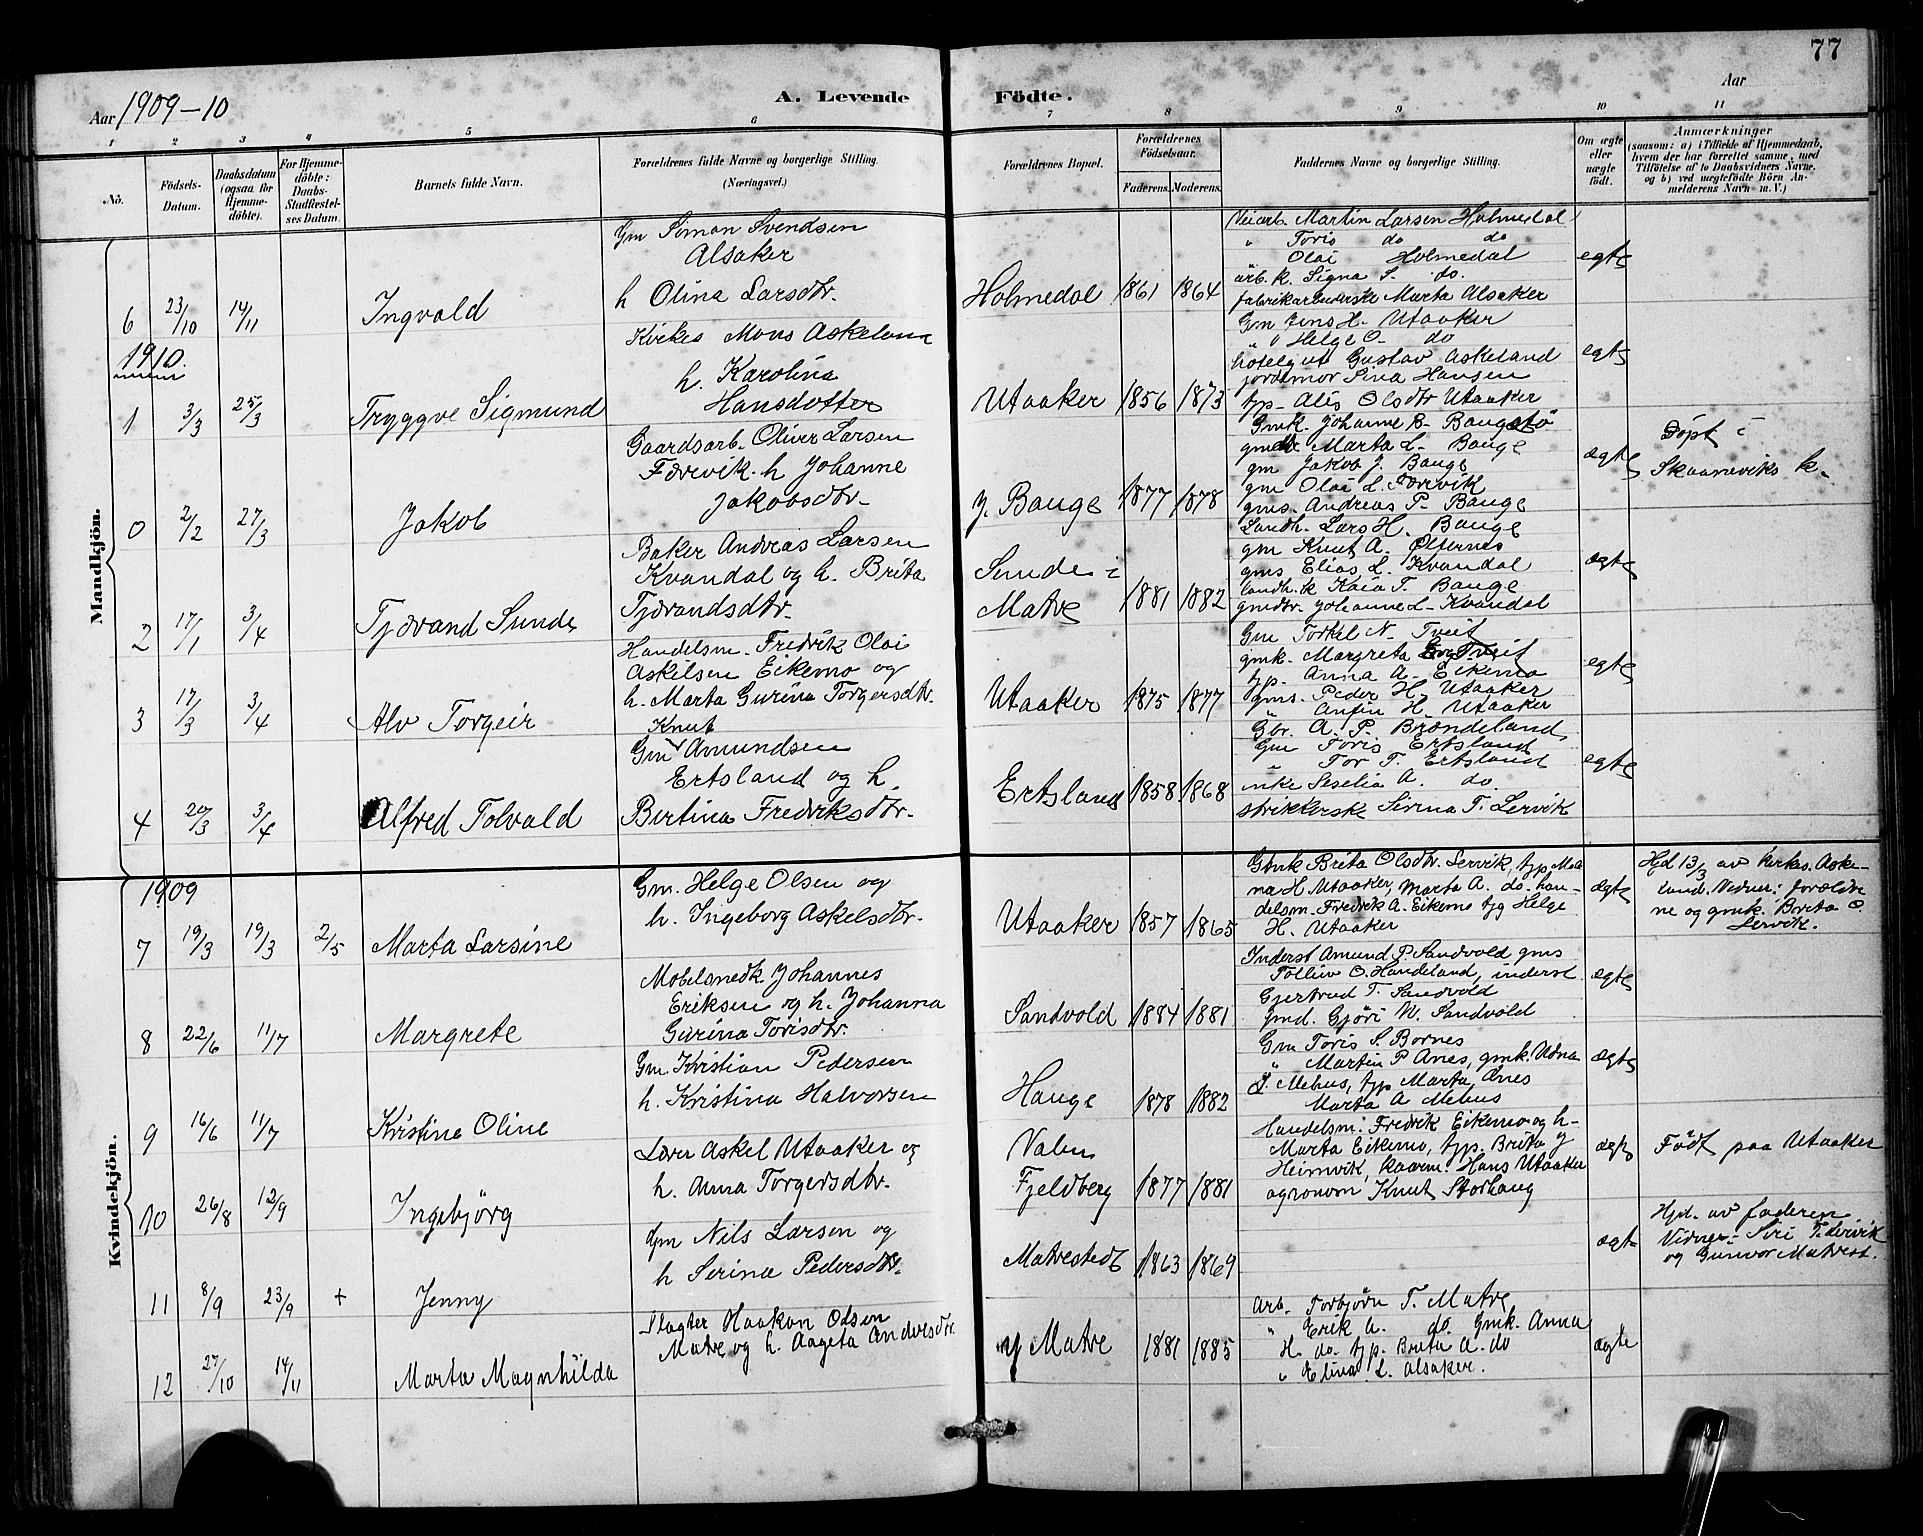 77
Aar 1909-10
A. Levende
Födte.
Aar
1
2
3
4
5
6
7
8
9
10
11
No.
Födsels-
Datum.
Daabsdatum
(ogsaa for
Hjemme-
döbte).
For Hjemme-
döbte:
Daabs-
Stadfæstel-
ses Datum.
Barnets fulde Navn.
Forældrenes fulde Navne og borgerlige Stilling.
(Næringsvei.)
Forældrenes Bopæl.
Forældrenes
Födselsaar.
Faderens.
Moderens.
Faddernes Navne og borgerlige Stilling.
Om ægte
eller
uægte
födt.
Anmærkninger
(saasom: a) i Tilfælde af Hjemmedaab,
hvem der har forrettet samme, med
Tilföielse af to Daabsvidners Navne,
og b) ved uægtefödte Börn An-
melderens Navn m. V.)
Mandkjön.
6 23/10 14/11 Ingvald
Gm Simon Svendsen
Alsaker
h Olina Larsdtr.
Holmedal 1861 1864
Veiarb. Martin Larsen Holmedal
" Toris do do
" Olai Holmedal
arb. k. Signa S. do.
fabrikarbeiderske Marta Alsaker
egte
1910.
1 3/3 25/3 Tryggve Sigmund
Kirkes Mons Askeland
h. Karolina
Hansdotter
Utaaker 1856 1873
Gm Jens H. Utaaker
" " Helge O. do
hotelgut Gustav Askeland
jordmor Sina Hansen
typ. Alis Olsdtr Utaaker
egte
0 2/2 27/3 Jakob
Gaardsarb. Oliver Larsen
Færevik. h Johanne
Jakobsdtr.
y. Bauge 1877 1878
Gmk. Johanne B. Baugstö
gmdtr Marta L. Bauge
gm Jakob J. Bauge
gm Olai L. Færevik
gms. Andreas P. Bauge
ægte
Döpt i
Skaaneviks k.
2 17/1 3/4 Tjærand Sunde
Baker Andreas Larsen
Kvandal og h. Brita
Tjærandsdtr.
Sunde i
Matre 1881 1882
Landh. Lars H. Bauge
gm Knut A. Ölfernes
gms Elias L. Kvandal
landh. k Kaia T. Bauge
gmdtr. Johanne L. Kvandal
ægte
3 17/3 3/4 Alv Torgeir
Handelsm. Fredrik Olai
Askilsen Eikemo og
h. Marta Gurina Torgersdtr.
Utaaker 1875 1877
Gm Torkel N. Tveit
gmk. Margreta Tveit
typ. Anna A. Eikemo
gms. Peder H. Utaaker
" Anfin H. Utaaker
egte
4 20/3 3/4 Alfred Tolvald
Knut
Gm Amundsen
Ertsland og h.
Bertina Fredriksdtr.
Ertsland 1858 1868
Gbr. A. P. Brændeland,
Gm Toris Ertsland
" Tor T. Ertsland
enke Seselia A. do
strikkerske Sirina T. Lervik
egte
Kvindekjön.
1909
7 19/3 19/3 2/5 Marta Larsine
Gm. Helge Olsen og
h. Ingeborg Askelsdtr.
Utaaker 1857 1865
Gmk Brita Olsdtr. Lervik, typ. Mal-
na H. Utaaker, Marta A. do. han-
delsm. Fredrik A. Eikemo typ Helge
H. Utaaker
ægte
Hjd. 13/3 av kirkes. Aske-
land. Vidner: foreldre
ne og gmk. Brita O.
Lervik.
8 22/6 11/7 Margrete
Mobelsnedk. Johannes
Eriksen og h. Johanna
Gurina Torisdtr.
Sandvold 1884 1881
Inderst Amund P Sandvold gms
Tolleiv O. Handeland, inderst
Gjertrud T. Sandvold
gmd. Gjöri N. Sandvold
ægte
9 16/6 11/7 Kristine Oline
Gm. Kristian Pedersen
h. Kristina Halvorsen
Hauge 1878 1882
Gm Toris S. Bornes
" Martin P Anes, gmk. Udna
S. Mehus, typ Marta Anes
Marta A Mehus
ægte
10 26/8 12/9 Ingebjörg
Lærer Askel Utaaker og
h. Anna Torgersdtr.
Valen
Fjeldberg 1877 1881
Handelsm. Fredrik Eikemo og h.
Marta Eikemo, typ. Brita G
Heimvik, kaarm. Hans Utaaker
agronom Knut Storhaug
ægte
Födt paa Utaaker
11 8/9 23/9 + Jenny
Gm Nils Larsen og
h Serina Pedersdtr.
Matrestedt 1863 1869
ægte
Hjd. av faderen
Vidner: Siri T. Lervik
og Gunvor Matrest.
12 27/10 14/11 Marta Magnhilda
Slagter Haakon Olsen
Matre og h. Aageta Andersdtr.
y Matre 1881 1885
Arb. Torbjörn T. Matre
" Erik A. do. Gmk. Anna
H. do. typ. Brita A. do
" Elina L. Alsaker.
ægte